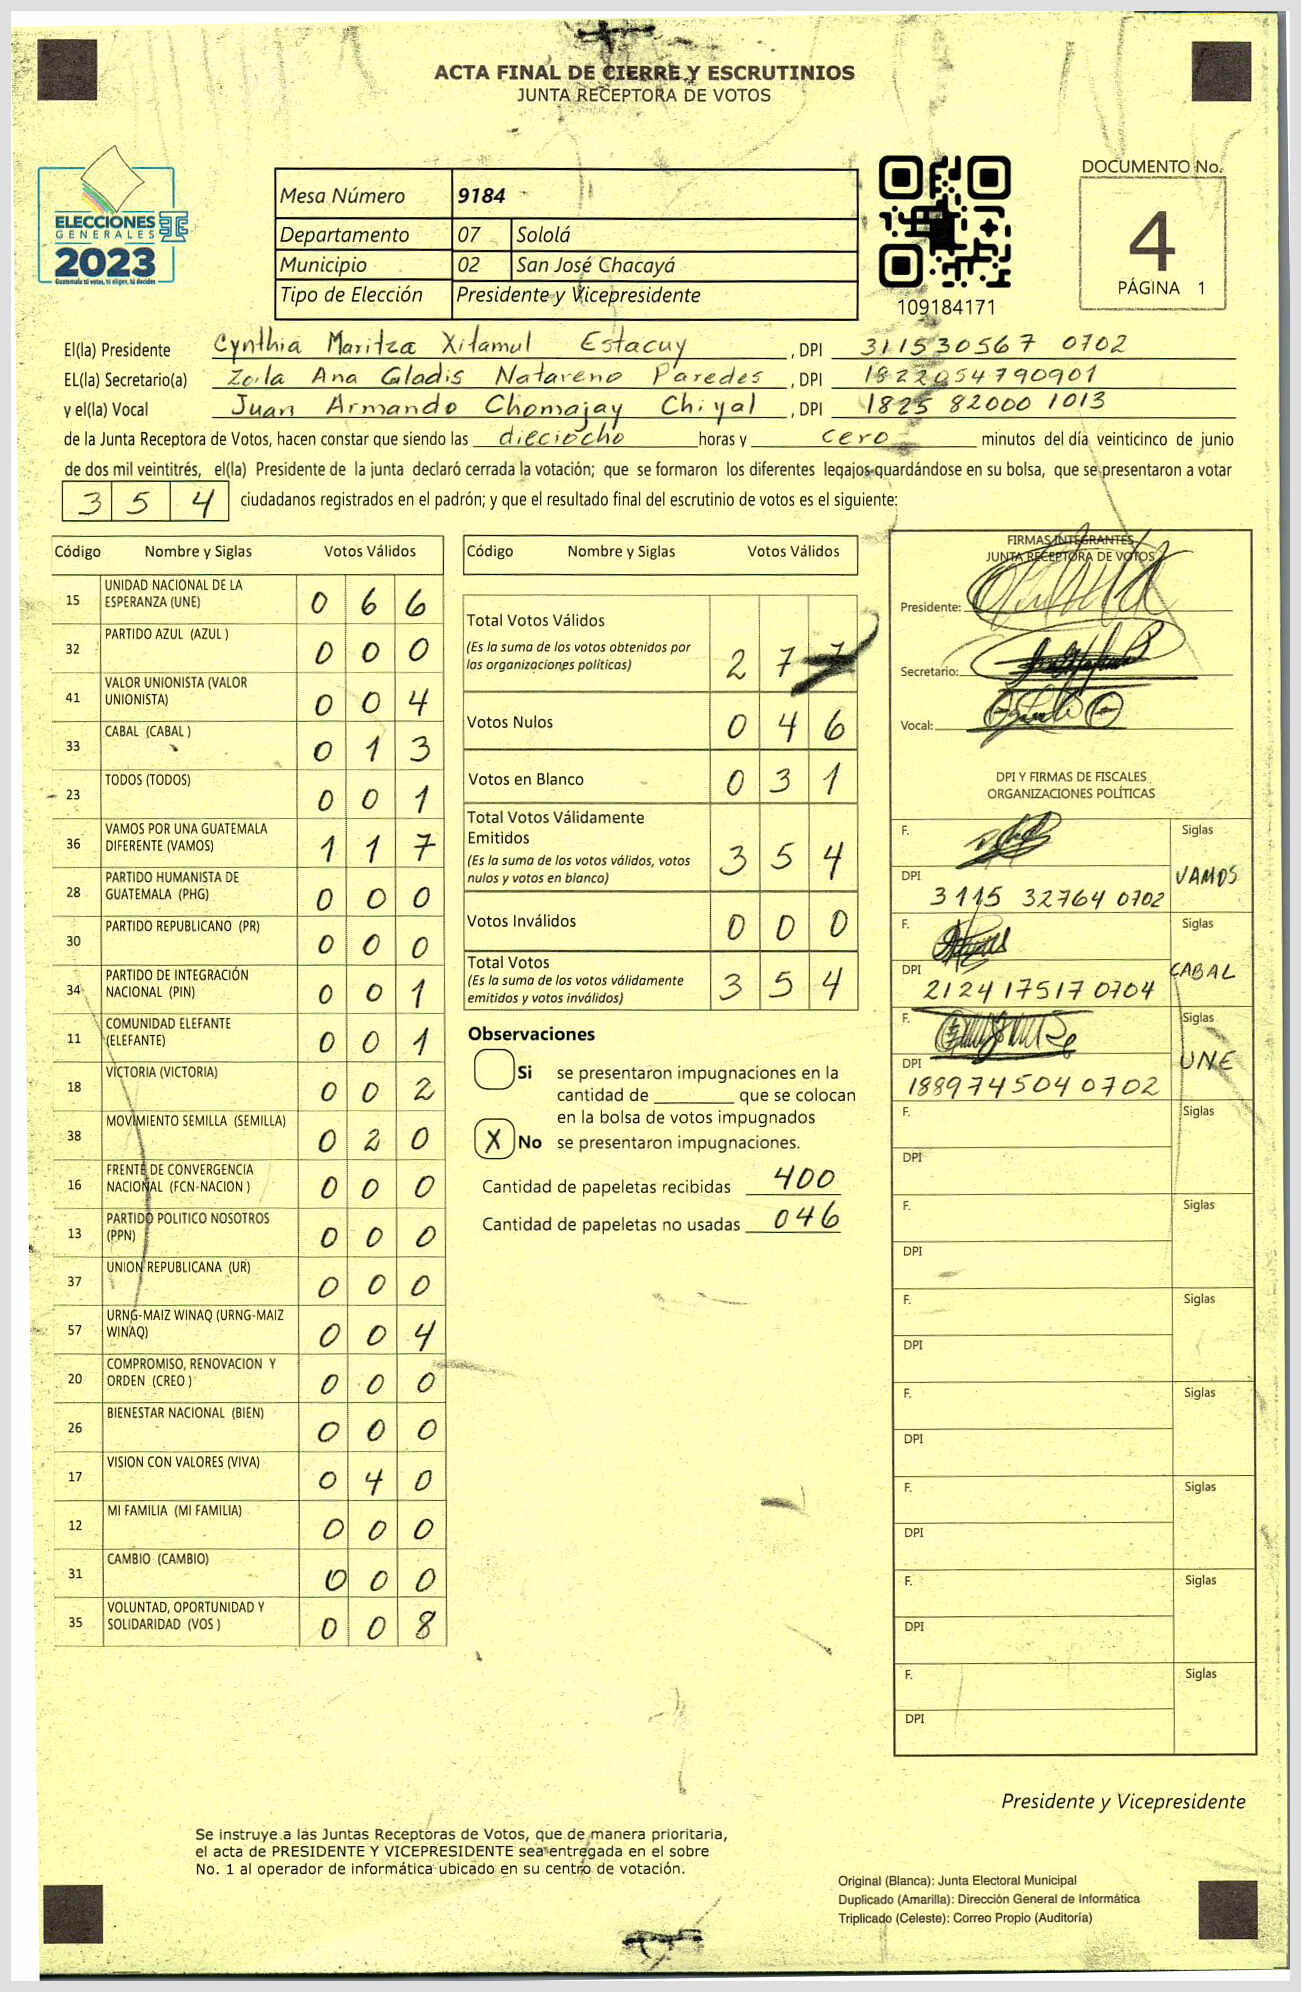 ACTA FINAL DE CIERRE Y ESCRUTINIOS
JUNTA RECEPTORA DE VOTOS
ELECCIONES
GENERALES
2023
Guatemala tú votas, tú eliges, tú decides
Mesa Número 9184
Departamento 07 Sololá
Municipio 02 San José Chacayá
Tipo de Elección Presidente y Vicepresidente
109184171
DOCUMENTO No.
4
PÁGINA 1
El(la) Presidente Cynthia Maritza Xitamul Estacuy , DPI 311530567 0702
EL(la) Secretario(a) Zoila Ana Gladis Natareno Paredes , DPI 1822054790901
y el(la) Vocal Juan Armando Chomajay Chiyal , DPI 1825 82000 1013
de la Junta Receptora de Votos, hacen constar que siendo las dieciocho horas y cero minutos del día veinticinco de junio
de dos mil veintitrés, el(la) Presidente de la junta declaró cerrada la votación; que se formaron los diferentes legajos guardándose en su bolsa, que se presentaron a votar
354 ciudadanos registrados en el padrón; y que el resultado final del escrutinio de votos es el siguiente:
Código Nombre y Siglas Votos Válidos
15 UNIDAD NACIONAL DE LA ESPERANZA (UNE) 0 6 6
32 PARTIDO AZUL (AZUL ) 0 0 0
41 VALOR UNIONISTA (VALOR UNIONISTA) 0 0 4
33 CABAL (CABAL ) 0 1 3
23 TODOS (TODOS) 0 0 1
36 VAMOS POR UNA GUATEMALA DIFERENTE (VAMOS) 1 1 7
28 PARTIDO HUMANISTA DE GUATEMALA (PHG) 0 0 0
30 PARTIDO REPUBLICANO (PR) 0 0 0
34 PARTIDO DE INTEGRACIÓN NACIONAL (PIN) 0 0 1
11 COMUNIDAD ELEFANTE (ELEFANTE) 0 0 1
18 VICTORIA (VICTORIA) 0 0 2
38 MOVIMIENTO SEMILLA (SEMILLA) 0 2 0
16 FRENTE DE CONVERGENCIA NACIONAL (FCN-NACION ) 0 0 0
13 PARTIDO POLITICO NOSOTROS (PPN) 0 0 0
37 UNION REPUBLICANA (UR) 0 0 0
57 URNG-MAIZ WINAQ (URNG-MAIZ WINAQ) 0 0 4
20 COMPROMISO, RENOVACION Y ORDEN (CREO ) 0 0 0
26 BIENESTAR NACIONAL (BIEN) 0 0 0
17 VISION CON VALORES (VIVA) 0 4 0
12 MI FAMILIA (MI FAMILIA) 0 0 0
31 CAMBIO (CAMBIO) 0 0 0
35 VOLUNTAD, OPORTUNIDAD Y SOLIDARIDAD (VOS ) 0 0 8
Código Nombre y Siglas Votos Válidos
Total Votos Válidos
(Es la suma de los votos obtenidos por
las organizaciones políticas) 2 7 7
Votos Nulos 0 4 6
Votos en Blanco 0 3 1
Total Votos Válidamente
Emitidos
(Es la suma de los votos válidos, votos
nulos y votos en blanco) 3 5 4
Votos Inválidos 0 0 0
Total Votos
(Es la suma de los votos válidamente
emitidos y votos inválidos) 3 5 4
Observaciones
Si se presentaron impugnaciones en la
cantidad de ________ que se colocan
en la bolsa de votos impugnados
X No se presentaron impugnaciones.
Cantidad de papeletas recibidas 400
Cantidad de papeletas no usadas 046
FIRMAS INTEGRANTES
JUNTA RECEPTORA DE VOTOS
Presidente:
Secretario:
Vocal:
DPI Y FIRMAS DE FISCALES
ORGANIZACIONES POLÍTICAS
F. Siglas
VAMOS
DPI 3115 32764 0702
F. Siglas
CABAL
DPI 2124 17517 0704
F. Siglas
UNE
DPI 1889745040702
F. Siglas
DPI
F. Siglas
DPI
F. Siglas
DPI
F. Siglas
DPI
F. Siglas
DPI
F. Siglas
DPI
F. Siglas
DPI
Presidente y Vicepresidente
Se instruye a las Juntas Receptoras de Votos, que de manera prioritaria,
el acta de PRESIDENTE Y VICEPRESIDENTE sea entregada en el sobre
No. 1 al operador de informática ubicado en su centro de votación.
Original (Blanca): Junta Electoral Municipal
Duplicado (Amarilla): Dirección General de Informática
Triplicado (Celeste): Correo Propio (Auditoría)